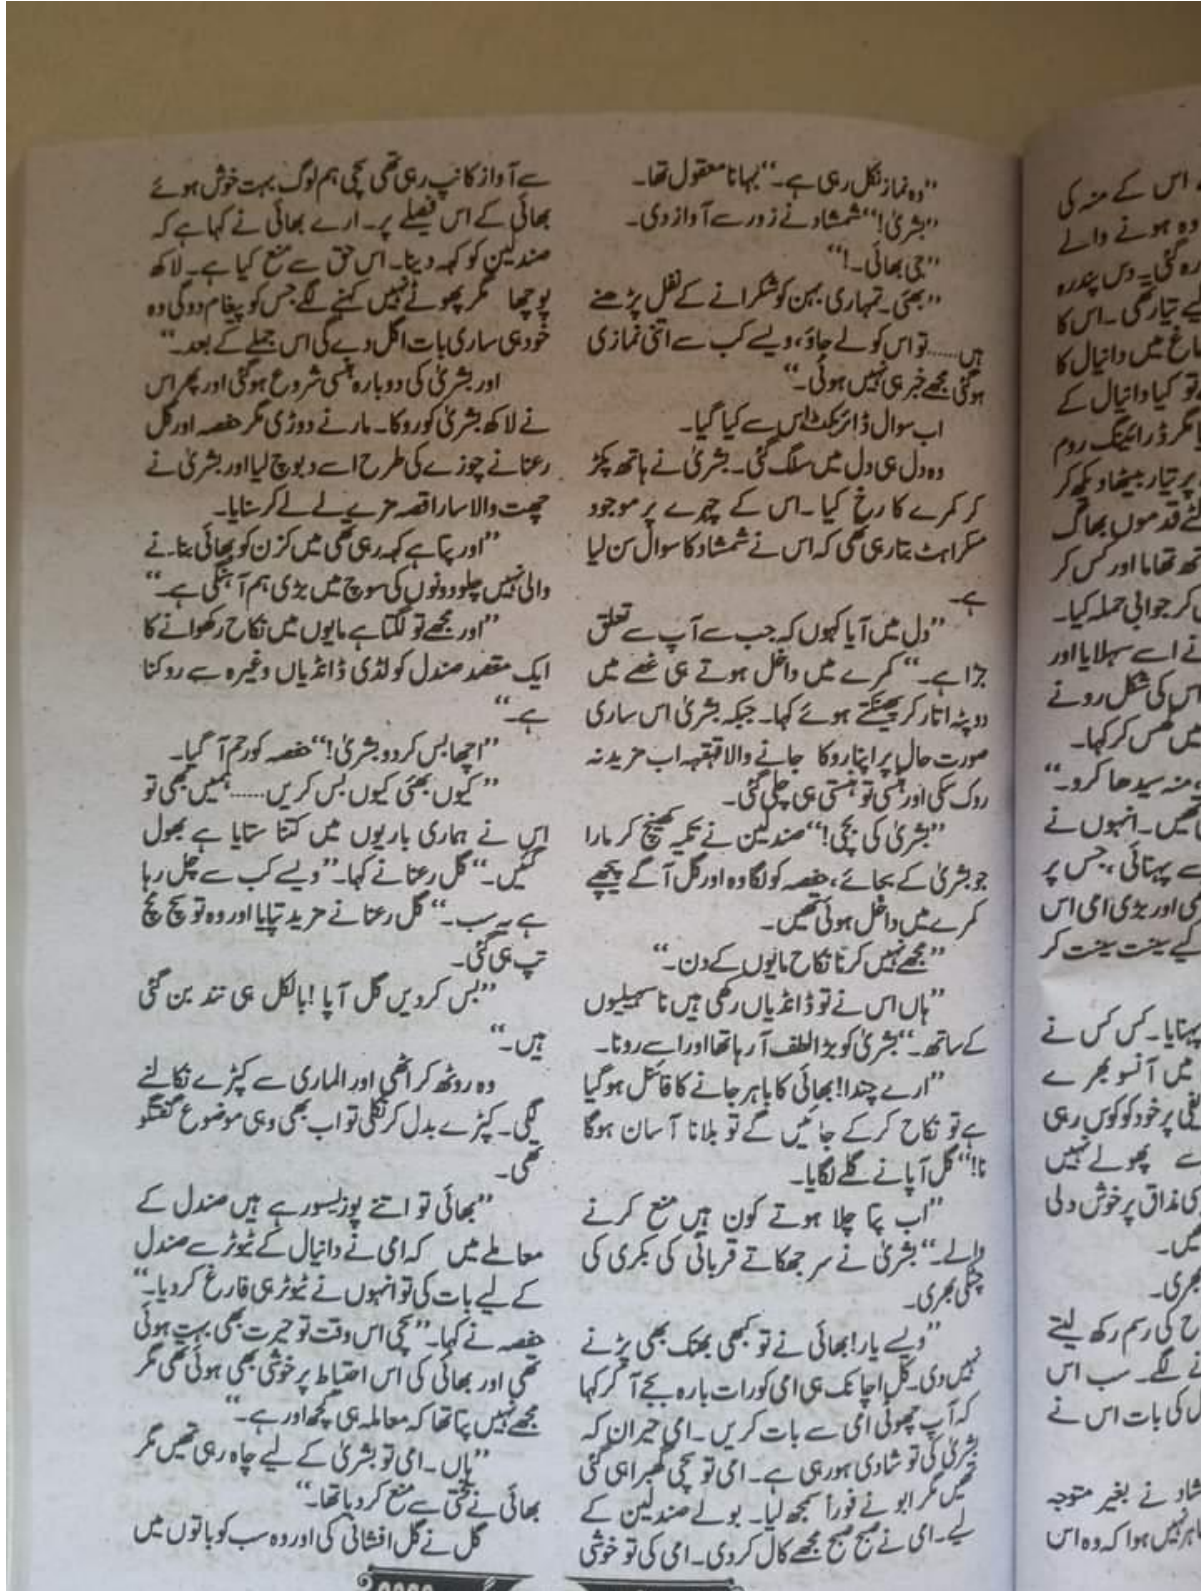 ”وہ نماز نکل رہی ہے۔“ بہانا معقول تھا۔
”بشریٰ!“ شمشاد نے زور سے آواز دی۔
”جی بھائی۔!“
”بھئی۔ تمہاری بہن کو شکرانے کے نفل پڑھنے
ہیں...... تو اس کو لے جاؤ، ویسے کب سے اتنی نمازی
ہوگئی مجھے خبر ہی نہیں ہوئی۔“
اب سوال ڈائریکٹ اس سے کیا گیا۔
وہ دل ہی دل میں سلگ گئی۔ بشریٰ نے ہاتھ پکڑ
کر کمرے کا رخ کیا۔ اس کے چہرے پر موجود
مسکراہٹ بتا رہی تھی کہ اس نے شمشاد کا سوال سن لیا
ہے۔
”دل میں آیا کہوں کہ جب سے آپ سے تعلق
جڑا ہے۔“ کمرے میں داخل ہوتے ہی غصے میں
دوپٹہ اتار کر پھینکتے ہوئے کہا۔ جبکہ بشریٰ اس ساری
صورت حال پر اپنا روکا جانے والا قہقہہ اب مزید نہ
روک سکی اور ہنسی تو ہنستی ہی چلی گئی۔
”بشریٰ کی بچی!“ صندلین نے تکیہ کھینچ کر مارا
جو بشریٰ کے بجائے، حفصہ کو لگا وہ اور گل آگے پیچھے
کمرے میں داخل ہوئی تھیں۔
”مجھے نہیں کرنا نکاح مایوں کے دن۔“
”ہاں اس نے تو ڈانڈیاں رکھی ہیں نا سہیلیوں
کے ساتھ۔“ بشریٰ کو بڑا لطف آ رہا تھا اور اسے رونا۔
”ارے چندا! بھائی کا باہر جانے کا فائنل ہو گیا
ہے تو نکاح کر کے جائیں گے تو بلانا آسان ہوگا
نا!“ گل آپا نے گلے لگایا۔
”اب پتا چلا ہوتے کون ہیں منع کرنے
والے۔“ بشریٰ نے سر جھکاتے قربانی کی بکری کی
چٹکی بھری۔
”ویسے یار! بھائی نے تو کبھی بھنک بھی پڑنے
نہیں دی۔ کل اچانک ہی امی کو رات بارہ بجے آ کر کہا
کہ آپ چھوٹی امی سے بات کریں۔ امی حیران کہ
بشریٰ کی تو شادی ہو رہی ہے۔ امی تو سچی گھبرا ہی گئی
تھیں مگر ابو نے فوراً سمجھ لیا۔ بولے صندلین کے
لیے۔ امی نے صبح صبح مجھے کال کر دی۔ امی کی تو خوشی
سے آواز کانپ رہی تھی سچی ہم لوگ بہت خوش ہوئے
بھائی کے اس فیصلے پر۔ ارے بھائی نے کہا ہے کہ
صندلین کو کہہ دینا۔ اس حق سے منع کیا ہے۔ لاکھ
پوچھا مگر پھوٹے نہیں کہنے لگے جس کو پیغام دو گی وہ
خود ہی ساری بات اگل دے گی اس جملے کے بعد۔“
اور بشریٰ کی دوبارہ ہنسی شروع ہوگئی اور پھر اس
نے لاکھ بشریٰ کو روکا۔ مارنے دوڑی مگر حفصہ اور گل
رعنا نے چوزے کی طرح اسے دبوچ لیا اور بشریٰ نے
چھت والا سارا قصہ مزے لے لے کر سنایا۔
”اور پتا ہے کہہ رہی تھی میں کزن کو بھائی بنانے
والی نہیں چلو دونوں کی سوچ میں بڑی ہم آہنگی ہے۔“
”اور مجھے تو لگتا ہے مایوں میں نکاح رکھوانے کا
ایک مقصد صندل کو لڈی ڈانڈیاں وغیرہ سے روکنا
ہے۔“
”اچھا بس کر دو بشریٰ!“ حفصہ کو رحم آ گیا۔
”کیوں بھئی کیوں بس کریں...... ہمیں بھی تو
اس نے ہماری باریوں میں کتنا ستایا ہے بھول
گئیں۔“ گل رعنا نے کہا۔ ”ویسے کب سے چل رہا
ہے یہ سب۔“ گل رعنا نے مزید تپایا اور وہ تو سچ مچ
تپ ہی گئی۔
”بس کر دیں گل آپا! بالکل ہی نند بن گئی
ہیں۔“
وہ روٹھ کر اٹھی اور الماری سے کپڑے نکالنے
لگی۔ کپڑے بدل کر نکلی تو اب بھی وہی موضوع گفتگو
تھی۔
”بھائی تو اتنے پوزیسور ہے ہیں صندل کے
معاملے میں کہ امی نے دانیال کے ٹیوٹر سے صندل
کے لیے بات کی تو انہوں نے ٹیوٹر ہی فارغ کر دیا۔“
حفصہ نے کہا۔ ”سچی اس وقت تو حیرت بھی بہت ہوئی
تھی اور بھائی کی اس احتیاط پر خوشی بھی ہوئی تھی مگر
مجھے نہیں پتا تھا کہ معاملہ ہی کچھ اور ہے۔“
”ہاں۔ امی تو بشریٰ کے لیے چاہ رہی تھیں مگر
بھائی نے سختی سے منع کر دیا تھا۔“
گل نے گل افشانی کی اور وہ سب کو باتوں میں